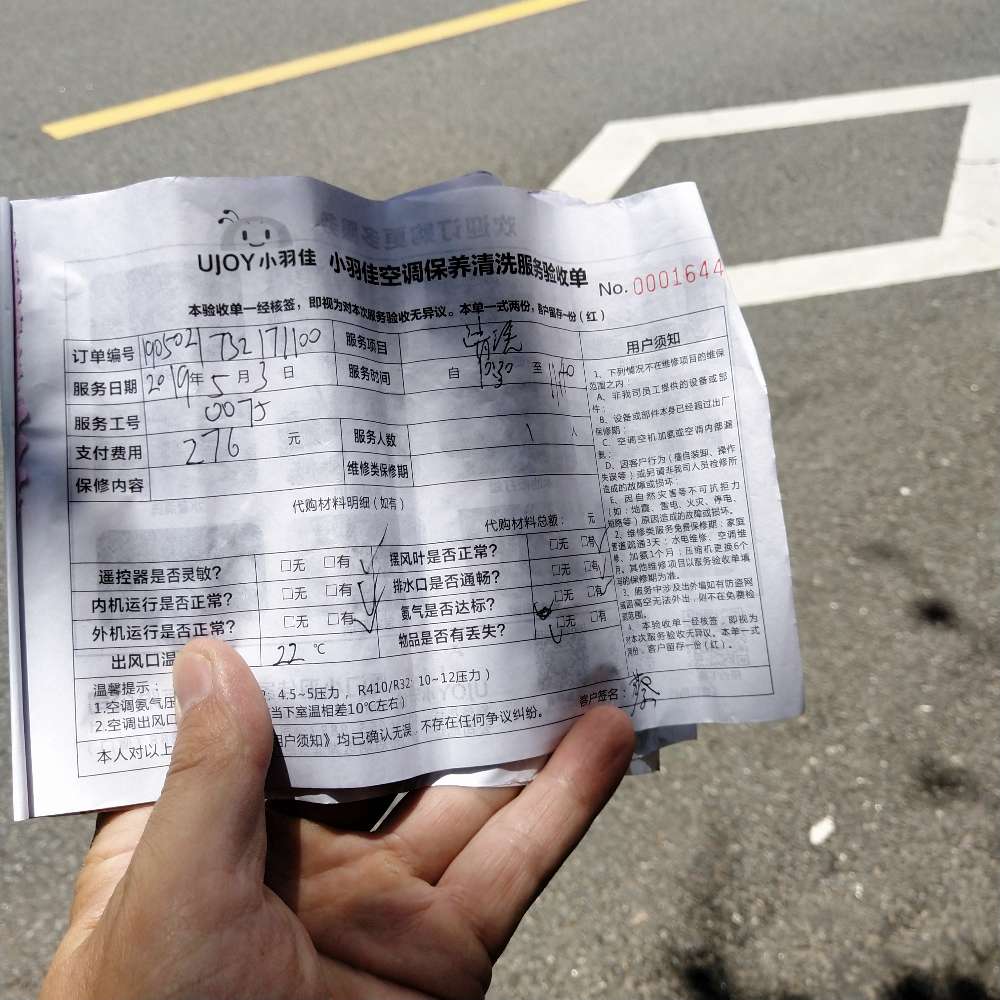 UJOY小羽佳 小羽佳空调保养清洗服务验收单 No. 0001644
本验收单一经核签，即视为对本次服务验收无异议。本单一式两份，客户留存一份（红）
订单编号 1905021732171100 服务项目 清洗
服务日期 2019年 5月 3日 服务时间 自 10:30 至 11:40
服务工号 0075
支付费用 276 元 服务人数 1 人
保修内容 维修类保修期
代购材料明细（如有）
代购材料总额： 元
遥控器是否灵敏？ □无 □有 摆风叶是否正常？ □无 □有
内机运行是否正常？ □无 □有 排水口是否通畅？ □无 □有
外机运行是否正常？ □无 □有 氨气是否达标？ □无 □有
出风口温 22 ℃ 物品是否有丢失？ □无 □有
温馨提示：
1.空调氨气压 4.5~5压力，R410/R32: 10~12压力）
2.空调出风口 当下室温相差10℃左右）
本人对以上 用户须知》均已确认无误，不存在任何争议纠纷。 客户签名：
用户须知
1、下列情况不在维修项目的维保
范围之内：
A、非我司员工提供的设备或部
件；
B、设备或部件本身已经超过出厂
保修期；
C、空调空机加氨或空调内部漏
氨；
D、因客户行为（擅自装卸、操作
失误等）或另请非我司人员检修所
造成的故障或损坏；
E、因自然灾害等不可抗拒力
（如：地震、雷电、火灾、停电、
等）原因造成的故障或损坏。
2、维修类服务免费保修期：家庭
管道疏通3天；水电维修、空调维
修、加氨1个月；压缩机更换6个
月。其他维修项目以服务验收单填
的保修期为准。
3、服务中涉及出外墙如有防盗网
高空无法外出，则不在免费检
范围。
本验收单一经核签，即视为
对本次服务验收无异议。本单一式
两份，客户留存一份（红）。